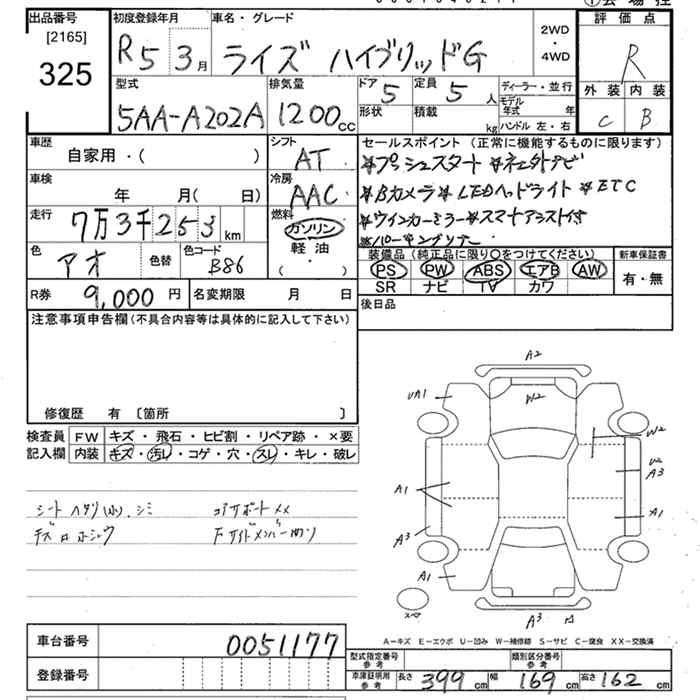 出品番号
[2165]
325
初度登録年月
R5 3月
車名・グレード
ライズ ハイブリッドG
2WD
・
4WD
評価点
R
外装 内装
C B
型式
5AA-A202A
排気量
1200cc
ドア
5
形状
定員
5人
積載
kg
ディーラー・並行
モデル年式 年
ハンドル 左・右
車歴
自家用・( )
車検
年 月( 日)
走行
7万3千253km
色
アオ
色替
色コード
B86
シフト
AT
冷房
AAC
燃料
ガソリン
軽油
( ・ )
セールスポイント (正常に機能するものに限ります)
*プッシュスタート *ネエ外ナビ
*Bカメラ *LEDヘッドライト *ETC
*ウインカーミラー *スマートアシスト付
*パーキングソナー
装備品(純正品に限り○をつけてください)
PS PW ABS エアB AW
SR ナビ TV カワ
新車保証書
有・無
R券 9,000円
名変期限 月 日
後日品
注意事項申告欄(不具合内容等は具体的に記入して下さい)
修復歴 有 〔箇所 〕
検査員記入欄
FW キズ・飛石・ヒビ割・リペア跡・×要
内装 キズ・汚レ・コゲ・穴・スレ・キレ・破レ
シート ヘタリ(小)、シミ
コアサポートXX
Fサイドメンバー曲リ
A2
UA1
W2
W2
W2
A3
A1
A1
A3
A1
A3
A-キズ E-エクボ U-凹み W-補修跡 S-サビ C-腐食 XX-交換済
車台番号 0051177
登録番号
型式指定番号
参考
類別区分番号
参考
車庫証明用
参考
長さ 399cm 幅 169cm 高さ 162cm